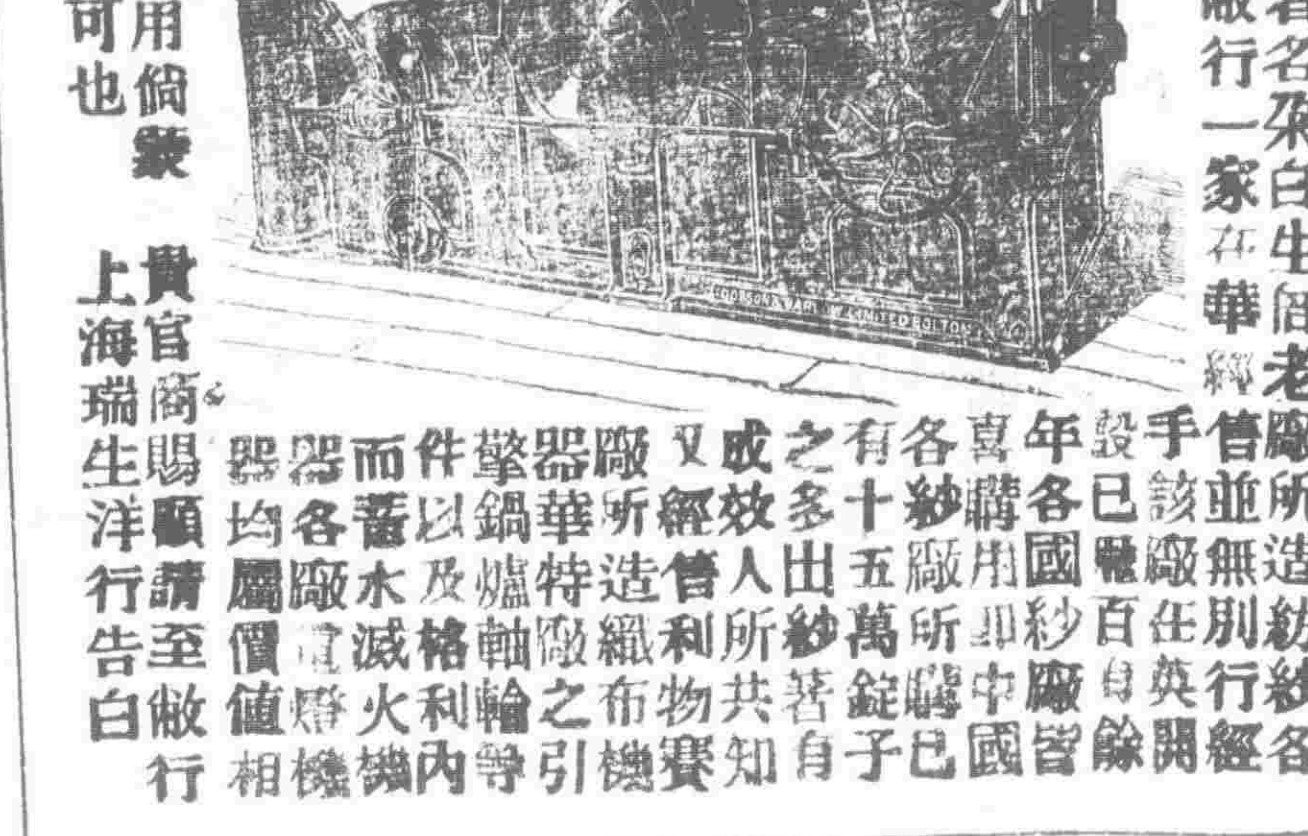 著名朶白生倍老廠所造紡紗各
敝行一家在華經管並無別行經
手該廠在英開
設已歷百有餘
年各國紗廠皆
喜購用即中國
各紗廠所購已
有十五萬錠子
之多出紗著自
成效人所共知
又經管利物賽
廠所造織布機
器華特廠之引
擎鍋爐軸輪等
件以及格利內
而蓄水滅火機
器各廠電燈機
器均屬價值相
用倘蒙 貴官商賜顧請至敝行
可也 上海瑞生洋行告白
DOBSON & BARLOW LIMITED BOLTON